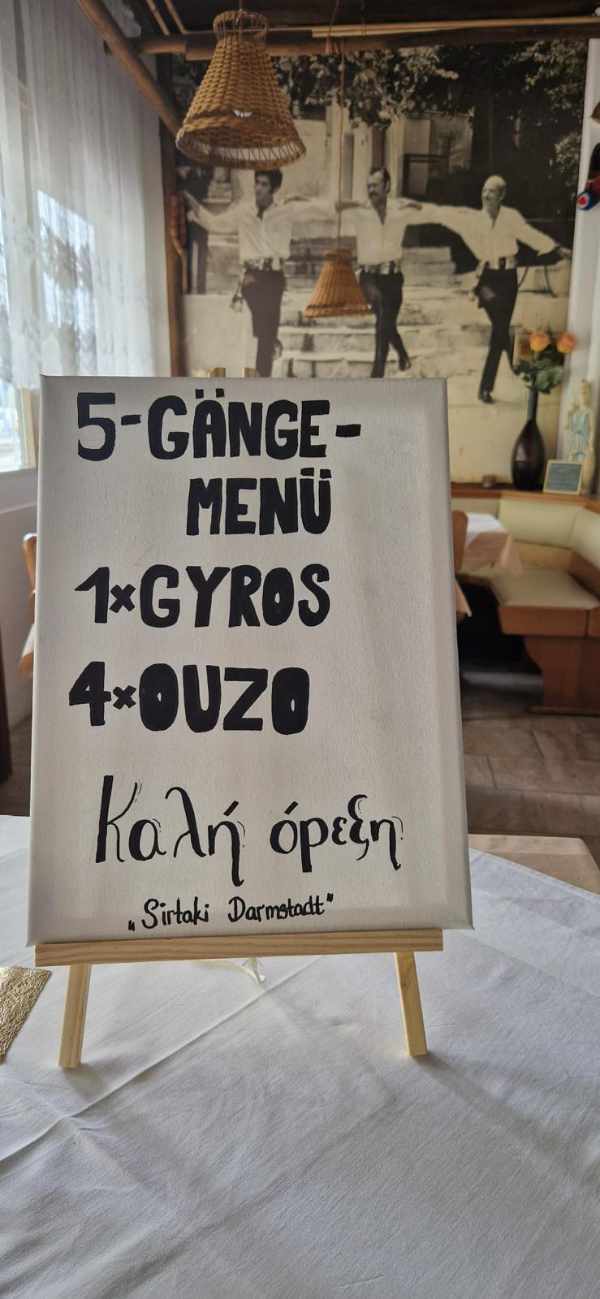 5-GÄNGE-
MENÜ
1×GYROS
4×OUZO
Καλή όρεξη
„Sirtaki Darmstadt"